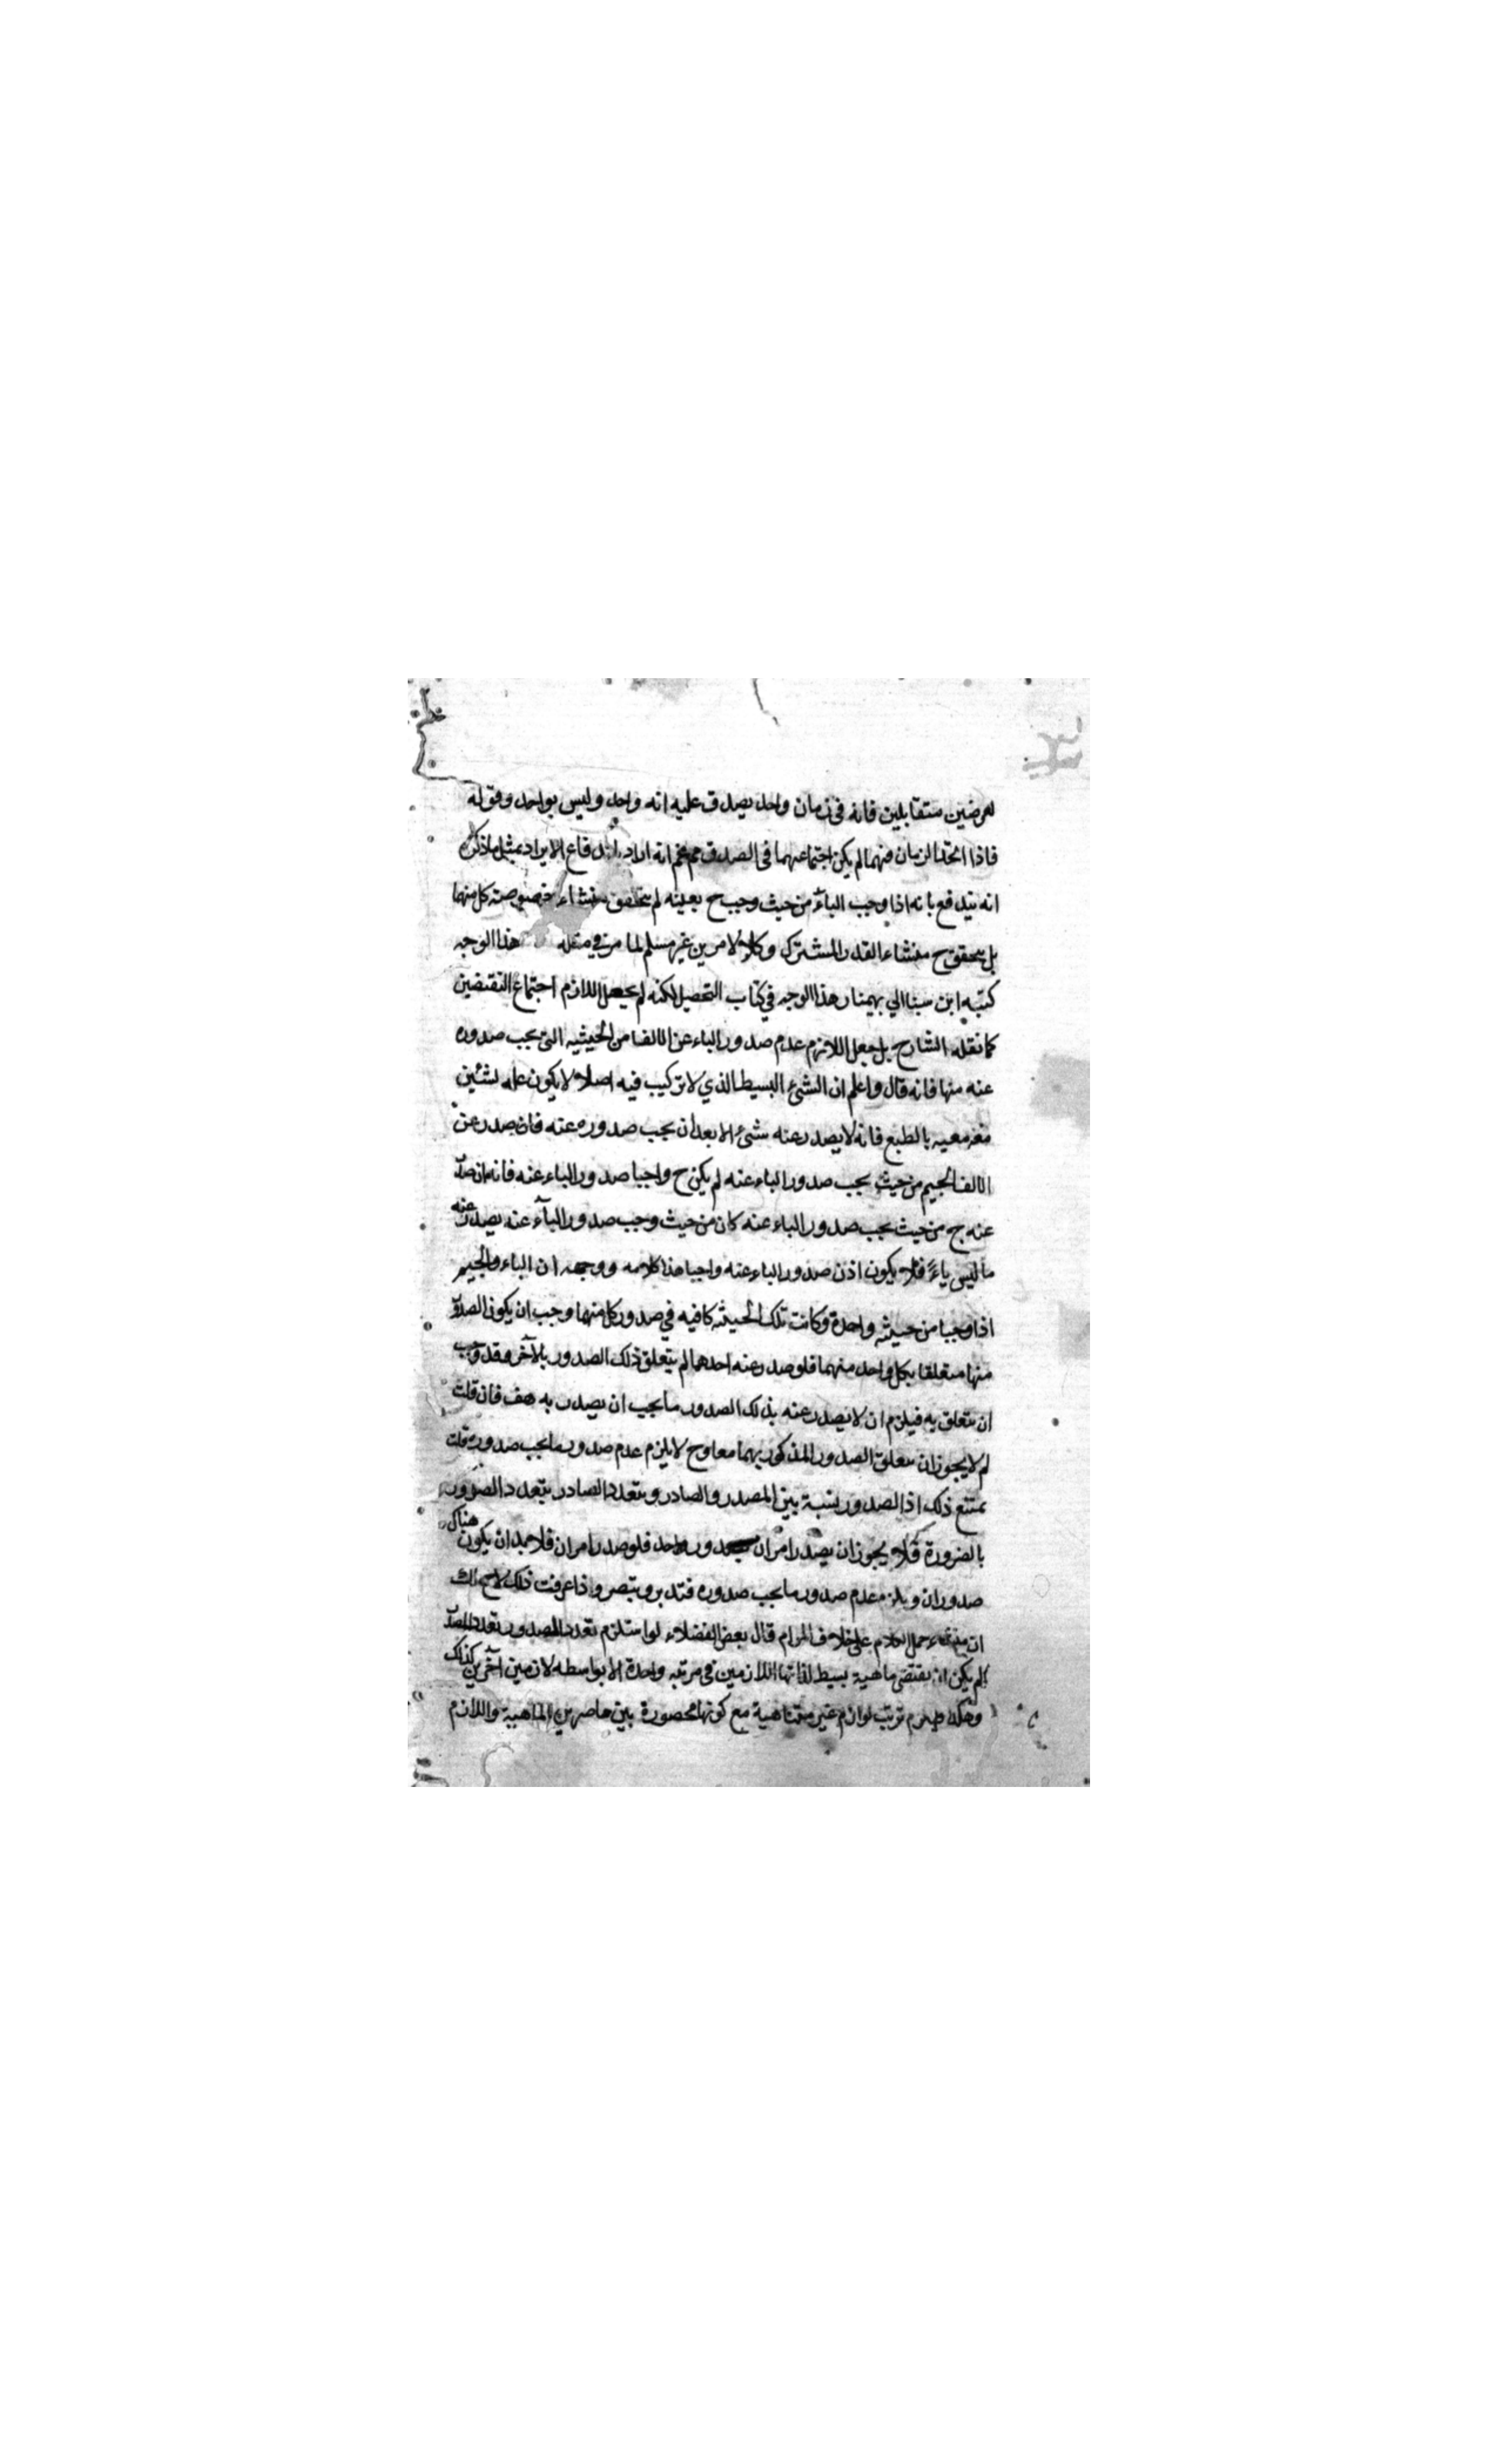 لعرضين متقابلين فانه فى زمان واحد يصدق عليه انه واحد وليس بواحد وقوله
فاذا اتحد الزمان فيهما لم يكن اجتماعهما فى الصدق مم ثم انه اراد اندفاع الايراد بمثل ماذكره
انه يندفع بانه اذا وجب الباء من حيث وجب ح بعينه لم يتحقق منشاء خصوصية كل منهما
بل يتحقق ح منشاء القدر المشترك وكلا الامرين غير مسلم لما مر في مثله هذا الوجه
كتبه ابن سينا الي بهمنيار هذا الوجه في كتاب التحصيل لكنه لم يجعل اللازم اجتماع النقيضين
كما نقله الشارح بل جعل اللازم عدم صدور الباء عن الالف من الحيثيه التى يجب صدوره
عنه منها فانه قال واعلم ان الشئ البسيط الذي لا تركيب فيه اصلا لا يكون عله لشئين
معا معيه بالطبع فانه لا يصدر عنه شئ الا بعد ان يجب صدوره عنه فان صدر عن
الالف الجيم من حيث يجب صدور الباء عنه لم يكن ح واجبا صدور الباء عنه فانه ان صدر
عنه ج من حيث يجب صدور الباء عنه كان من حيث وجب صدور الباء عنه يصدر عنه
ما ليس باء فلا يكون اذن صدور الباء عنه واجبا هذا كلامه ووجهه ان الباء والجيم
اذا وجبا من حيثيه واحدة وكانت تلك الحيثيه كافيه في صدور كل منها وجب ان يكون الصدور
منها متعلقا بكل واحد منهما فلو صدر عنه احدهما لم يتعلق ذلك الصدور بالآخر وقد وجب
ان يتعلق به فيلزم ان لا يصدر عنه بذلك الصدور ما يجب ان يصدر به هف فان قلت
لم لا يجوز ان يتعلق الصدور المذكور بهما معا وح لا يلزم عدم صدور ما يجب صدوره قلت
يمتنع ذلك اذ الصدور نسبة بين المصدر والصادر ويتعدد الصادر يتعدد الصدور
بالضرورة فلا يجوز ان يصدر امران بصدور واحد فلو صدر امران فلابد ان يكون هناك
صدوران ويلزم عدم صدور ما يجب صدوره فتدبر وتبصر واذا عرفت ذلك لاح لك
ان منشاء حمل الكلام على خلاف المرام قال بعض الفضلاء لو استلزم تعدد الصدور تعدد المصدر
لم يكن ان يقتضى ماهية بسيط لذاتها اللازمين فى مرتبه واحدة الا بواسطه لازمين آخرين كذلك
وهكذا فيلزم ترتب لوازم غير متناهية مع كونها محصورة بين حاصرين الماهية واللازم